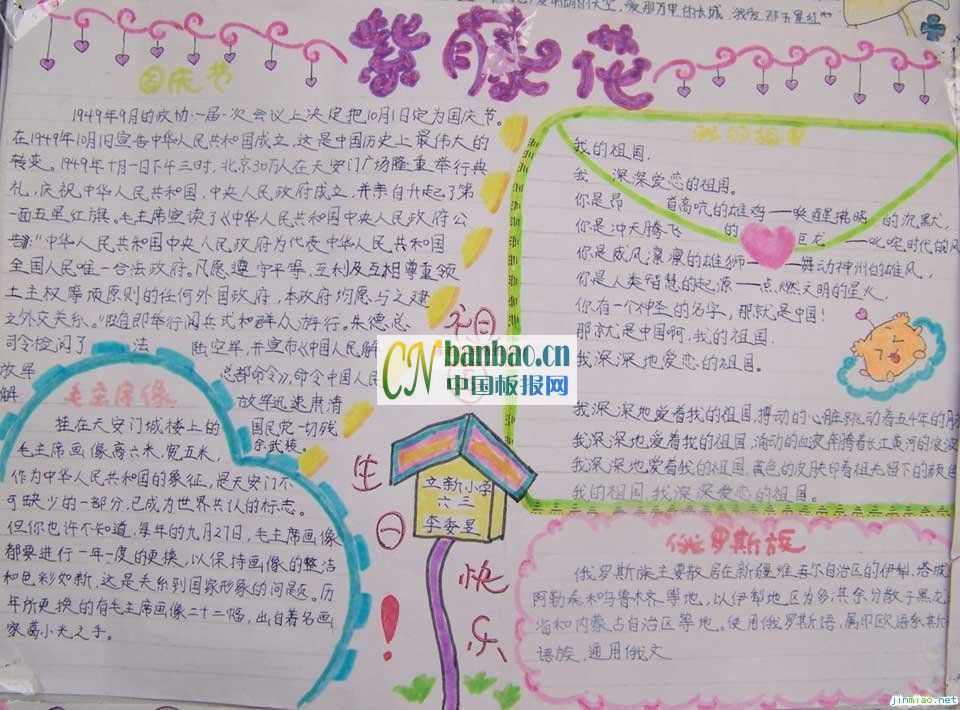 紫藤花
国庆节
1949年9月的政协一届一次会议上决定把10月1日定为国庆节。
在1949年10月1日宣告中华人民共和国成立,这是中国历史上最伟大的
转变。1949年十月一日下午三时,北京30万人在天安门广场隆重举行典
礼,庆祝中华人民共和国,中央人民政府成立,并亲自升起了第
一面五星红旗。毛主席宣读了《中华人民共和国中央人民政府公
告》:“中华人民共和国中央人民政府为代表中华人民共和国
全国人民唯一合法政府。凡愿遵守平等,互利及互相尊重领
土主权等项原则的任何外国政府,本政府均愿与之建
之外交关系。”随即举行阅兵式和群众游行。朱德总
司令检阅了 海 陆空军,并宣布《中国人民解
放军 总部命令》,命令中国人民
解 放军迅速肃清
国民党一切残
余武装。
毛主席像
挂在天安门城楼上的
毛主席画像高六米,宽五米,
作为中华人民共和国的象征,是天安门不
可缺少的一部分,已成为世界共认的标志。
但你也许不知道,每年的九月27日,毛主席画像
都要进行一年一度的更换,以保持画像的整洁
和色彩如新,这是关系到国家形象的问题。历
年所更换的有毛主席画像二十二幅,出自著名画
家葛小光之手。
祖国
生日
快乐
!
立新小学
六三
李委昱
我的祖国
我的祖国,
我 深深爱恋的祖国。
你是昂 首高吭的雄鸡——唤醒拂晓 的沉默,
你是冲天腾飞 的 巨龙 ——叱咤时代的风
你是威风凛凛的雄狮—— 舞动神州的雄风,
你是人类智慧的起源——点燃文明的星火,
你有一个神圣的名字,那就是中国!
那就是中国啊,我的祖国.
我深深地爱恋的祖国.
我深深地爱着我的祖国,搏动的心脏跳动着五千年的
我深深地爱着我的祖国,涌动的血液奔腾着长江黄河的浪波
我深深地爱着我的祖国,黄色的皮肤印着祖先留下的颜色
我的祖国,我深深爱恋的祖国。
俄罗斯族
俄罗斯族主要散居在新疆维吾尔自治区的伊犁,塔城
阿勒泰和乌鲁木齐等地,以伊犁地区为多,其余分散于黑龙
省和内蒙古自治区等地。使用俄罗斯语,属印欧语系斯
语族,通用俄文
CNbanbao.cn
中国板报网
jinmiao.net